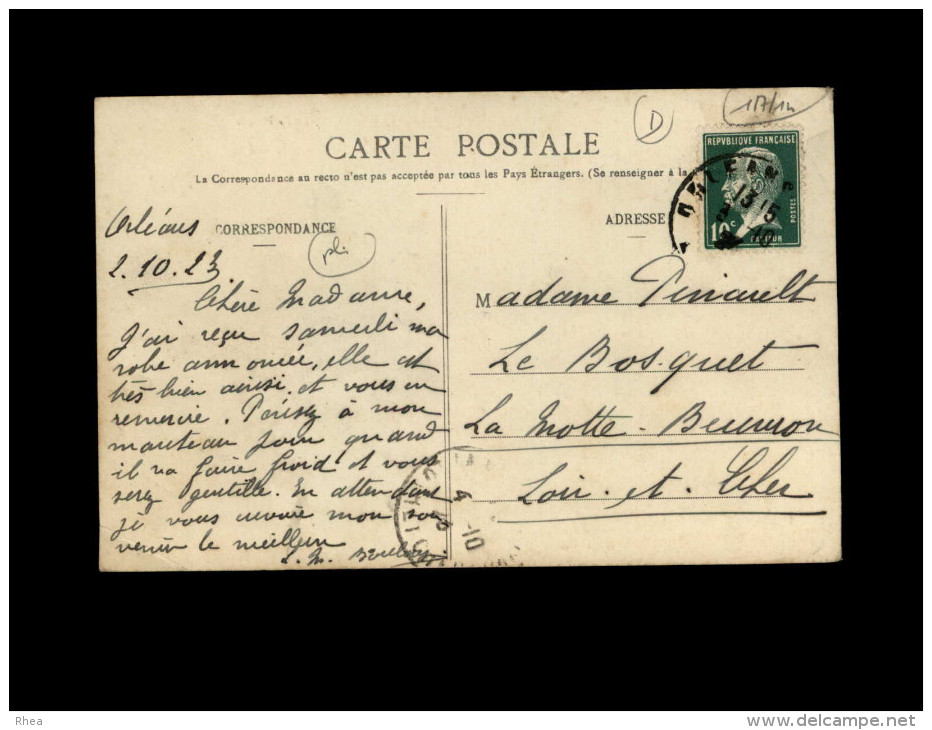 117/14
D
CARTE POSTALE
REPVBLIQVE FRANÇAISE
POSTES
10c
PASTEUR
ORLEANS
13 15
La Correspondance au recto n'est pas acceptée par tous les Pays Étrangers. (Se renseigner à la
CORRESPONDANCE
ADRESSE
pli
Orléans
2.10.23
Chère Madame,
J'ai reçu samedi ma
robe annoncée, elle est
très bien ainsi, et vous en
remercie. Pensez à mon
manteau pour quand
il va faire froid et vous
serez gentille. En attendant
je vous envoie mon sou
venir le meilleur
Madame Pinault
Le Bosquet
La Motte-Beuvron
Loir-et-Cher
4 -10
Rhea
www.delcampe.net